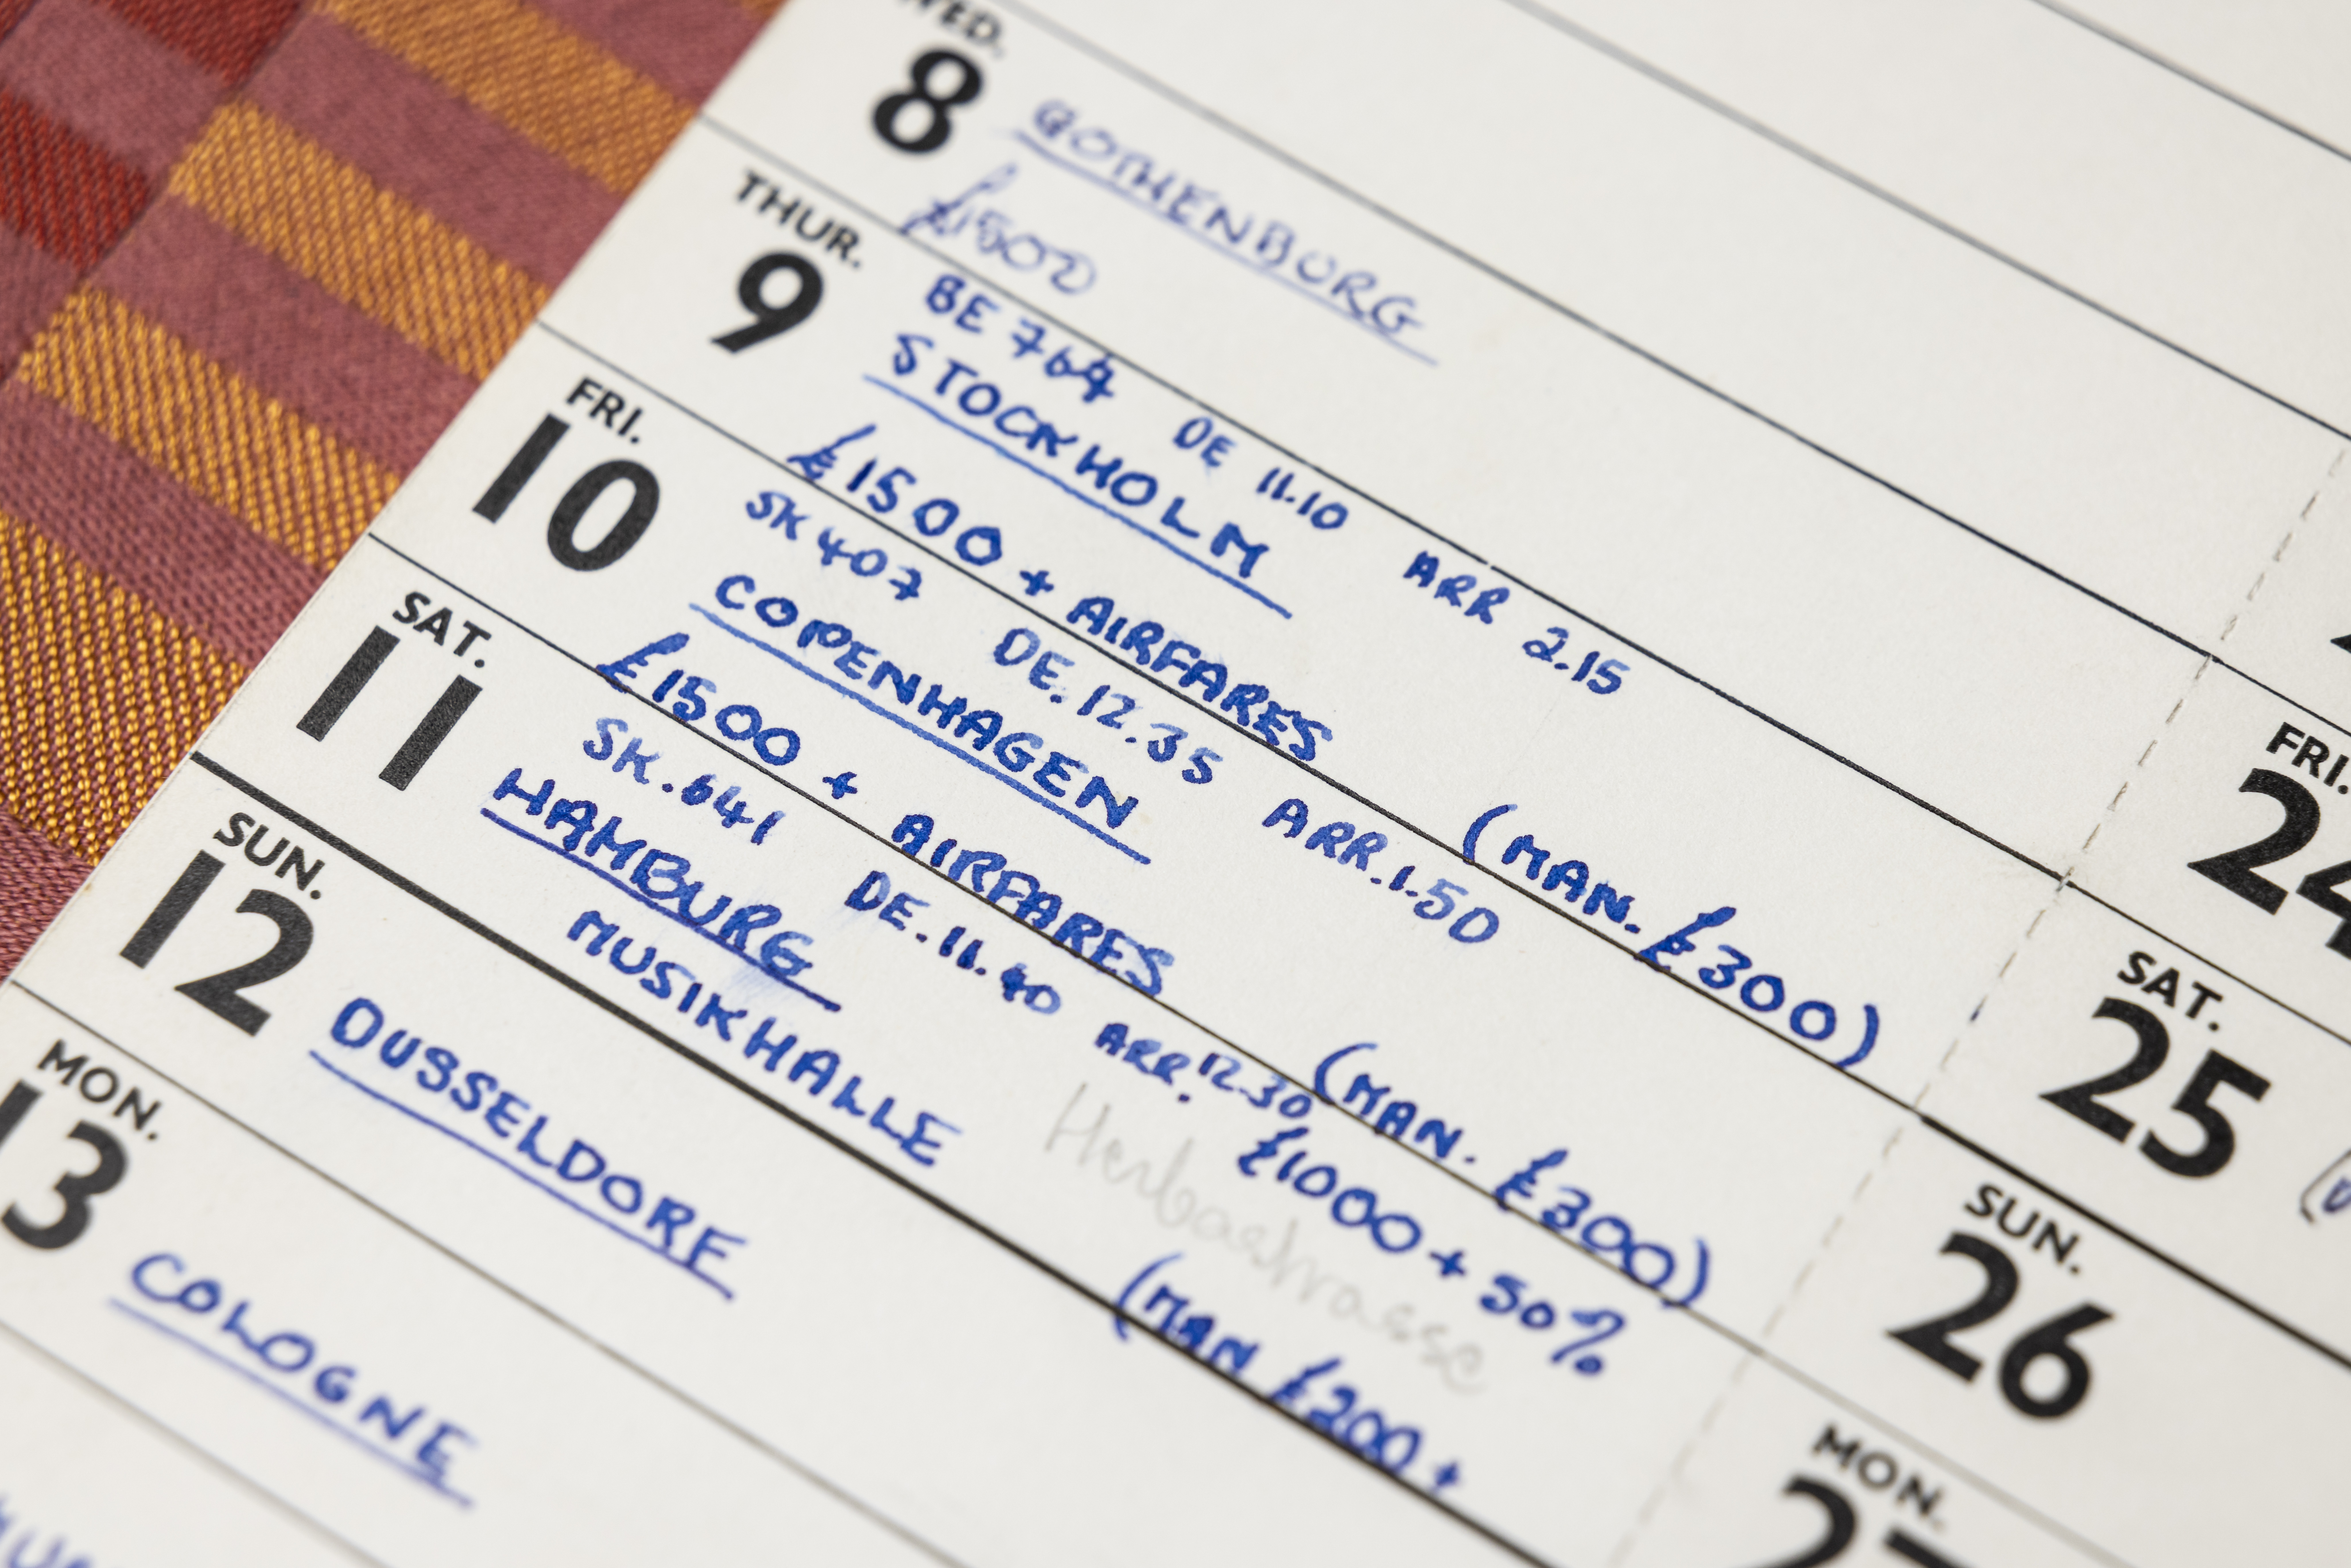 WED.
8
GOTHENBURG
£1500
THUR.
9
BE 764 DE 11.10 ARR 2.15
STOCKHOLM
£1500 + AIRFARES (MAN. £300)
FRI.
10
SK 407 DE. 12.35 ARR. 1.50
COPENHAGEN
£1500 + AIRFARES (MAN. £300)
SAT.
11
SK. 641 DE. 11.40 ARR. 12.30
HAMBURG £1000 + 50%
MUSIKHALLE (MAN £200 +
SUN.
12
DUSSELDORF
MON.
13
COLOGNE
FRI.
24
SAT.
25
SUN.
26
MON.
27